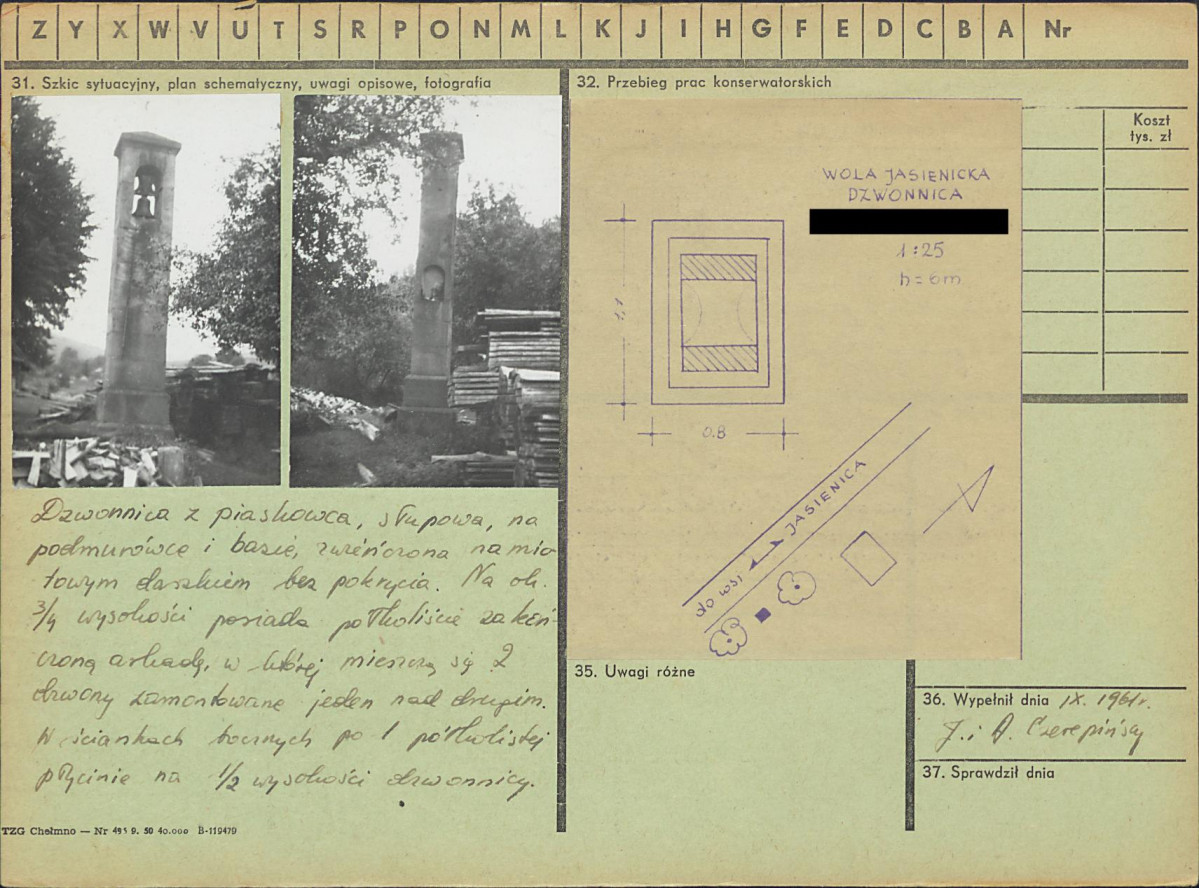 Z Y X W V U T S R P O N M L K J I H G F E D C B A Nr
31. Szkic sytuacyjny, plan schematyczny, uwagi opisowe, fotografia
Dzwonnica z piaskowca, słupowa, na
podmurówce i bazie, zwieńczona namio-
towym daszkiem bez pokrycia. Na ok.
3/4 wysokości posiada półkoliście zakoń-
czoną arkadę, w której mieszczą się 2
dzwony zamontowane jeden nad drugim.
W ściankach bocznych po 1 półkolistej
płycinie na 1/2 wysokości dzwonnicy.
TZG Chełmno — Nr 495 9. 50 40.000 B-119479
32. Przebieg prac konserwatorskich
Koszt
tys. zł
WOLA JASIENICKA
DZWONNICA
1:25
h = 6m
1,1
0.8
do wsi JASIENICA
35. Uwagi różne
36. Wypełnił dnia IX. 1961r.
J. i A. Czerepińscy
37. Sprawdził dnia